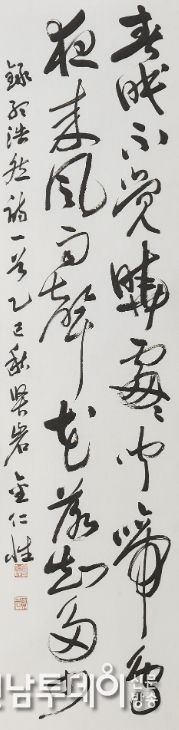 春眠不覺曉處〻聞啼鳥
夜來風雨聲花落知多少
錄孟浩然詩一首 乙巳秋 賢岩 金仁性
남투데이 신문
방송